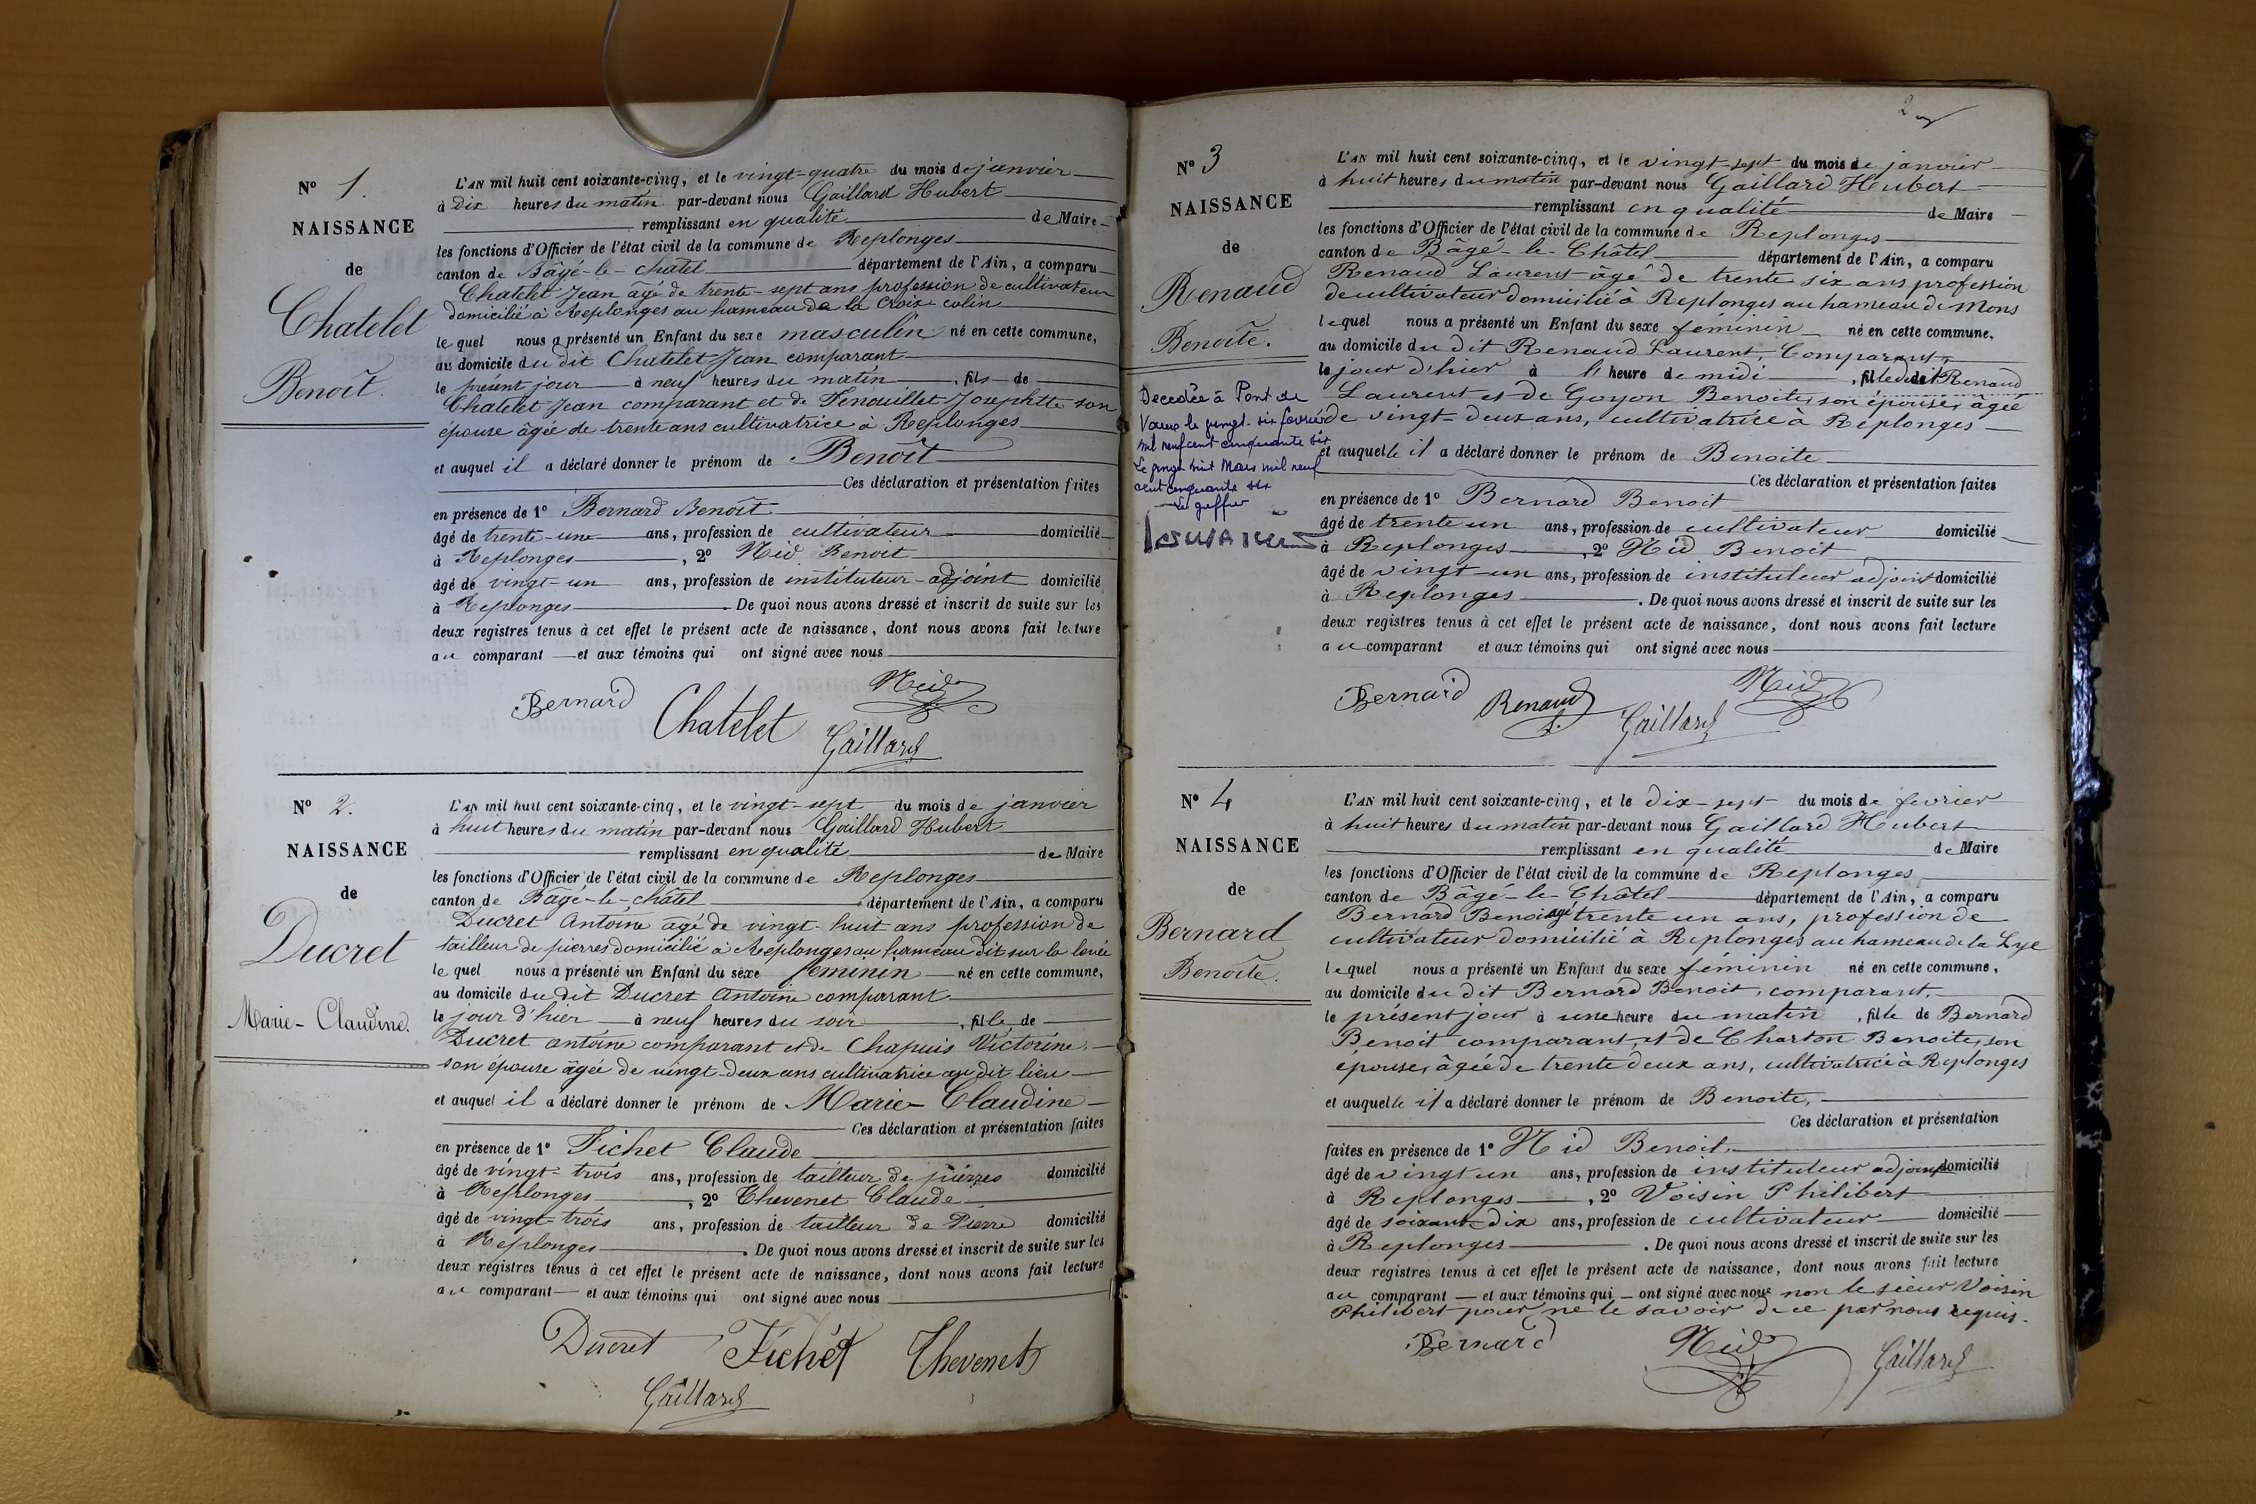 N° 1.
NAISSANCE
de
Chatelet
Benoît.
L'AN mil huit cent soixante-cinq, et le vingt-quatre du mois de janvier
à Dix heures du matin par-devant nous Gaillard Hubert
remplissant en qualité de Maire
les fonctions d'Officier de l'état civil de la commune de Replonges
canton de Bâgé-le-châtel département de l'Ain, a comparu
Chatelet Jean âgé de trente-sept ans profession de cultivateur
domicilié à Replonges au hameau de la Croix colin
le quel nous a présenté un Enfant du sexe masculin né en cette commune,
au domicile du dit Chatelet Jean comparant
le présent jour à neuf heures du matin, fils de
Chatelet Jean comparant et de Fenouillet Josephtte son
épouse âgée de trente ans cultivatrice à Replonges
et auquel il a déclaré donner le prénom de Benoît
Ces déclaration et présentation faites
en présence de 1° Bernard Benoît.
âgé de trente-une ans, profession de cultivateur domicilié
à Replonges, 2° Nid Benoit
âgé de vingt-un ans, profession de instituteur-adjoint domicilié
à Replonges. De quoi nous avons dressé et inscrit de suite sur les
deux registres tenus à cet effet le présent acte de naissance, dont nous avons fait lecture
au comparant et aux témoins qui ont signé avec nous
Bernard Chatelet Nid
Gaillard
N° 2.
NAISSANCE
de
Ducret
Marie-Claudine.
L'AN mil huit cent soixante-cinq, et le vingt-sept du mois de janvier
à huit heures du matin par-devant nous Gaillard Hubert
remplissant en qualité de Maire
les fonctions d'Officier de l'état civil de la commune de Replonges
canton de Bâgé-le-châtel département de l'Ain, a comparu
Ducret Antoine âgé de vingt-huit ans profession de
tailleur de pierres domicilié à Replonges au hameau dit sur la levée
le quel nous a présenté un Enfant du sexe féminin né en cette commune,
au domicile du dit Ducret Antoine comparant
le jour d'hier à neuf heures du soir, fille de
Ducret antoine comparant et de Chapuis Victorine
son épouse âgée de vingt-deux ans cultivatrice au dit lieu
et auquel il a déclaré donner le prénom de Marie-Claudine
Ces déclaration et présentation faites
en présence de 1° Fichet Claude
âgé de vingt-trois ans, profession de tailleur de pierres domicilié
à Replonges, 2° Thevenet Claude
âgé de vingt-trois ans, profession de tailleur de Pierre domicilié
à Replonges. De quoi nous avons dressé et inscrit de suite sur les
deux registres tenus à cet effet le présent acte de naissance, dont nous avons fait lecture
au comparant et aux témoins qui ont signé avec nous
Ducret Fichet Thevenet
Gaillard
2
N° 3
NAISSANCE
de
Renaud
Benoîte.
Decedée à Pont de
Vaux le vingt-six fevrier
mil neuf cent cinquante six
Le vingt huit Mars mil neuf
cent cinquante six
Le greffier
L'AN mil huit cent soixante-cinq, et le vingt-sept du mois de janvier
à huit heures du matin par-devant nous Gaillard Hubert
remplissant en qualité de Maire
les fonctions d'Officier de l'état civil de la commune de Replonges
canton de Bâgé-le-Châtel département de l'Ain, a comparu
Renaud Laurent âgé de trente six ans profession
de cultivateur domicilié à Replonges au hameau de Mons
lequel nous a présenté un Enfant du sexe féminin né en cette commune,
au domicile du dit Renaud Laurent, Comparant,
le jour d'hier à l'heure de midi, fille de dit Renaud
Laurent et de Goyon Benoite, son épouse, âgée
de vingt-deux ans, cultivatrice à Replonges
et auquelle il a déclaré donner le prénom de Benoite
Ces déclaration et présentation faites
en présence de 1° Bernard Benoit
âgé de trente un ans, profession de cultivateur domicilié
à Replonges, 2° Nid Benoit
âgé de vingt-un ans, profession de instituteur adjoint domicilié
à Replonges. De quoi nous avons dressé et inscrit de suite sur les
deux registres tenus à cet effet le présent acte de naissance, dont nous avons fait lecture
au comparant et aux témoins qui ont signé avec nous
Bernard Renaud Nid
Gaillard
N° 4
NAISSANCE
de
Bernard
Benoîte.
L'AN mil huit cent soixante-cinq, et le dix-sept du mois de fevrier
à huit heures du matin par-devant nous Gaillard Hubert
remplissant en qualité de Maire
les fonctions d'Officier de l'état civil de la commune de Replonges
canton de Bâgé-le-Châtel département de l'Ain, a comparu
Bernard Benoit agé trente un ans, profession de
cultivateur domicilié à Replonges au hameau de la Lye
lequel nous a présenté un Enfant du sexe féminin né en cette commune,
au domicile du dit Bernard Benoit, comparant,
le présent jour à une heure du matin, fille de Bernard
Benoit comparant, et de Charton Benoite, son
épouse, âgée de trente deux ans, cultivatrice à Replonges
et auquelle il a déclaré donner le prénom de Benoite,
Ces déclaration et présentation
faites en présence de 1° Nid Benoit
âgé de vingt un ans, profession de instituteur adjoint domicilié
à Replonges, 2° Voisin Philibert
âgé de soixante dix ans, profession de cultivateur domicilié
à Replonges. De quoi nous avons dressé et inscrit de suite sur les
deux registres tenus à cet effet le présent acte de naissance, dont nous avons fait lecture
au comparant et aux témoins qui ont signé avec nous non le sieur Voisin
Philibert pour ne le savoir de ce par nous requis.
Bernard Nid Gaillard